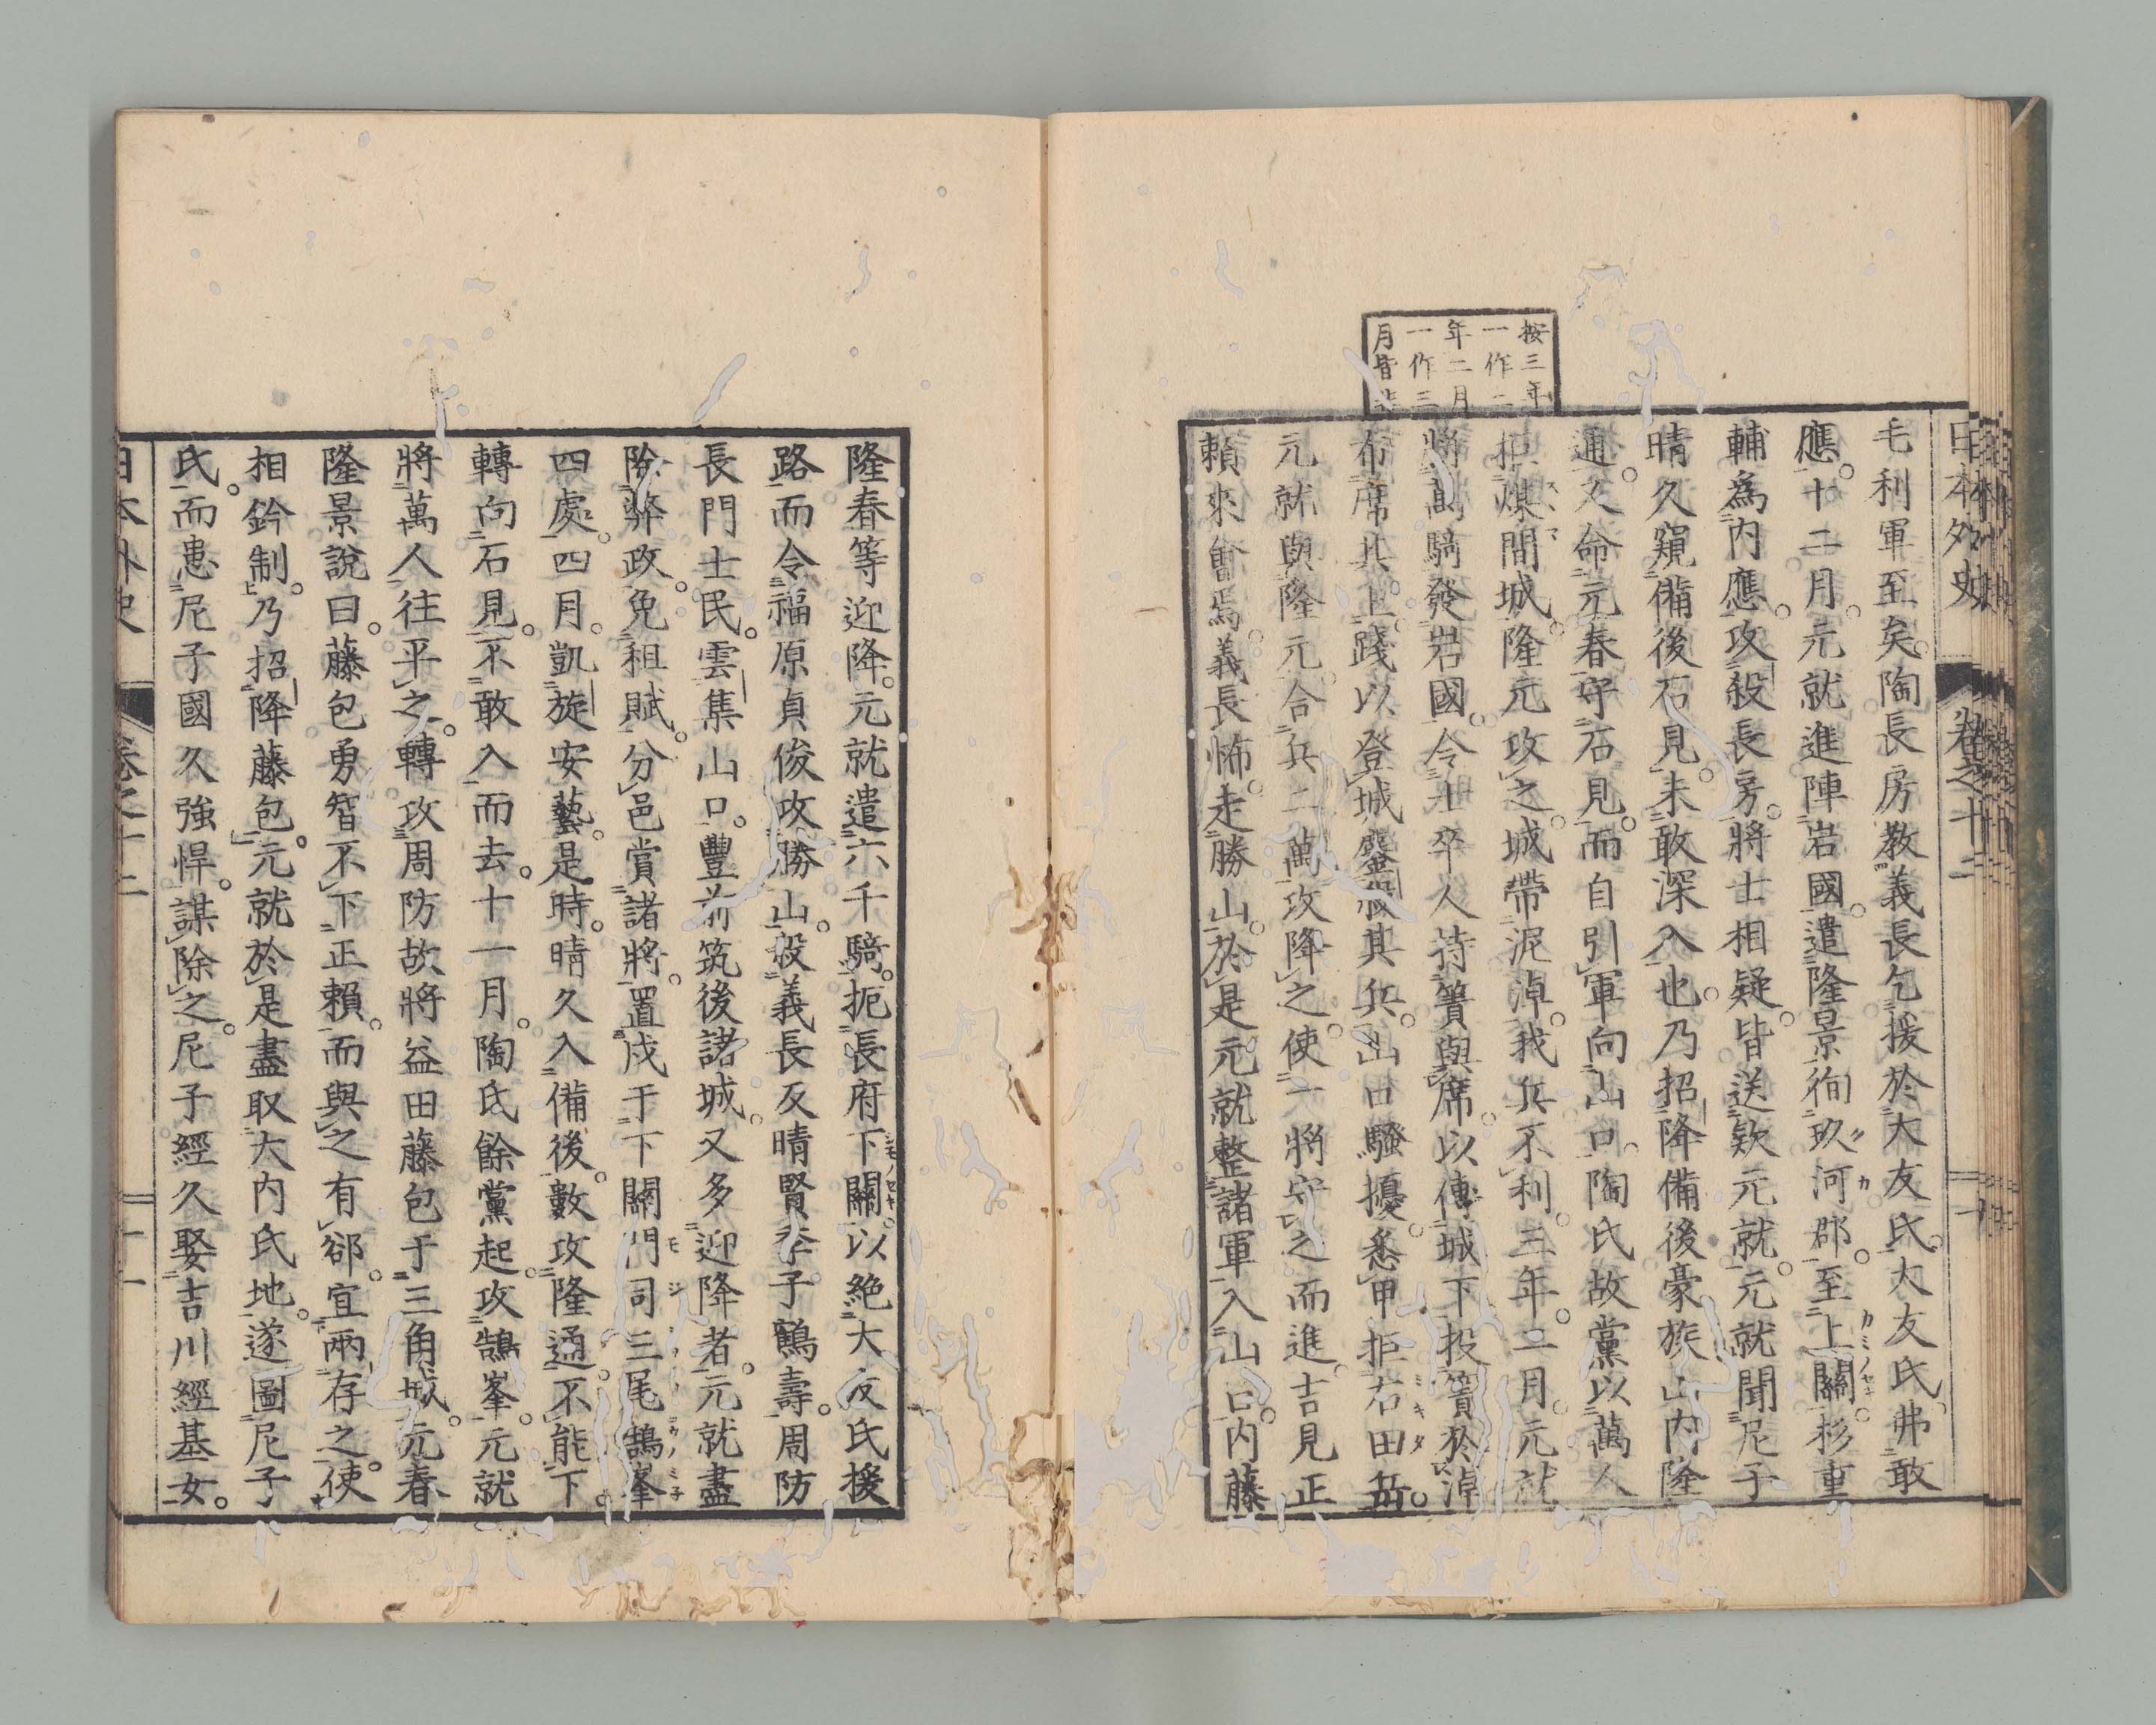 日本外史
卷之十二
按三年
一作二
年二月
一作三
月皆
毛利軍至矣。陶長房教義長乞援於大友氏。大友氏弗敢
應。十二月。元就進陣岩國。遣隆景徇玖河郡。至上關。杉重
輔為內應。攻殺長房。將士相疑。皆送欵元就。元就聞尼子
晴久窺備後石見。未敢深入也。乃招降備後豪族山內隆
通。又命元春守石見。而自引軍向山口。陶氏故黨以萬人
拒煤間城。隆元攻之。城帶泥淖。我兵不利。三年二月。元就
將萬騎發岩國。令士卒人持簣與席。以傅城下。投簣於淖。
布席其上。踐以登城。鏖殺其兵。山口騷擾。悉甲拒右田岳。
元就與隆元合兵二萬。攻降之。使一將守之而進。吉見正
賴來會焉。義長怖。走勝山。於是元就整諸軍入山口。內藤
隆春等迎降。元就遣六千騎。扼長府下關。以絕大友氏援
路。而令福原貞俊攻勝山。殺義長及晴賢季子鶴壽。周防
長門士民。雲集山口。豐前筑後諸城。又多迎降者。元就盡
除弊政。免租賦。分邑賞諸將。置戍于下關門司三尾鵠峯
四處。四月。凱旋安藝。是時。晴久入備後。數攻隆通。不能下。
轉向石見。不敢入而去。十一月。陶氏餘黨起。攻鵠峯。元就
將萬人往平之。轉攻周防故將益田藤包于三角城。元春
隆景說曰。藤包勇智不下正賴。而與之有郤。宜兩存之。使
相鈐制。乃招降藤包。元就於是盡取大內氏地。遂圖尼子
氏。而患尼子國久強悍。謀除之。尼子經久娶吉川經基女。
日本外史
卷之十二
十一